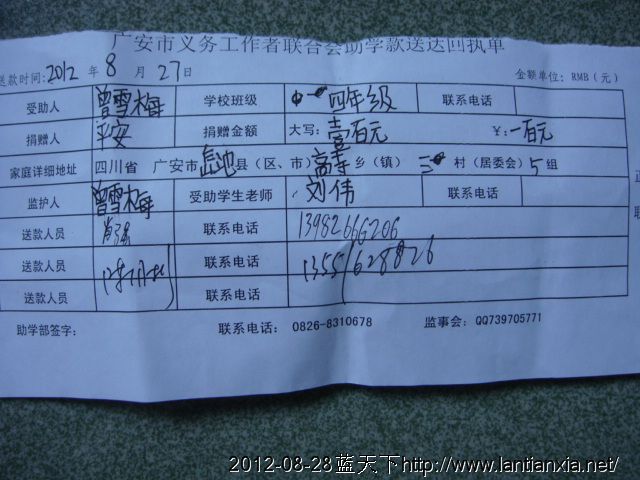 广安市义务工作者联合会助学款送达回执单
送款时间:2012 年 8 月 27日 金额单位: RMB (元)
受助人 曾雪梅 学校班级 四年级 联系电话
捐赠人 平安 捐赠金额 大写: 壹百元 ¥: 一百元
家庭详细地址 四川省 广安市岳池县(区、市) 乡(镇) 村(居委会) 5 组
监护人 曾雪梅 受助学生老师 刘伟 联系电话
送款人员 联系电话 13982666206
送款人员 联系电话 13551628826
送款人员 联系电话
助学部签字: 联系电话: 0826-8310678 监事会: QQ739705771
2012-08-28蓝天下http://www.lantianxia.net/